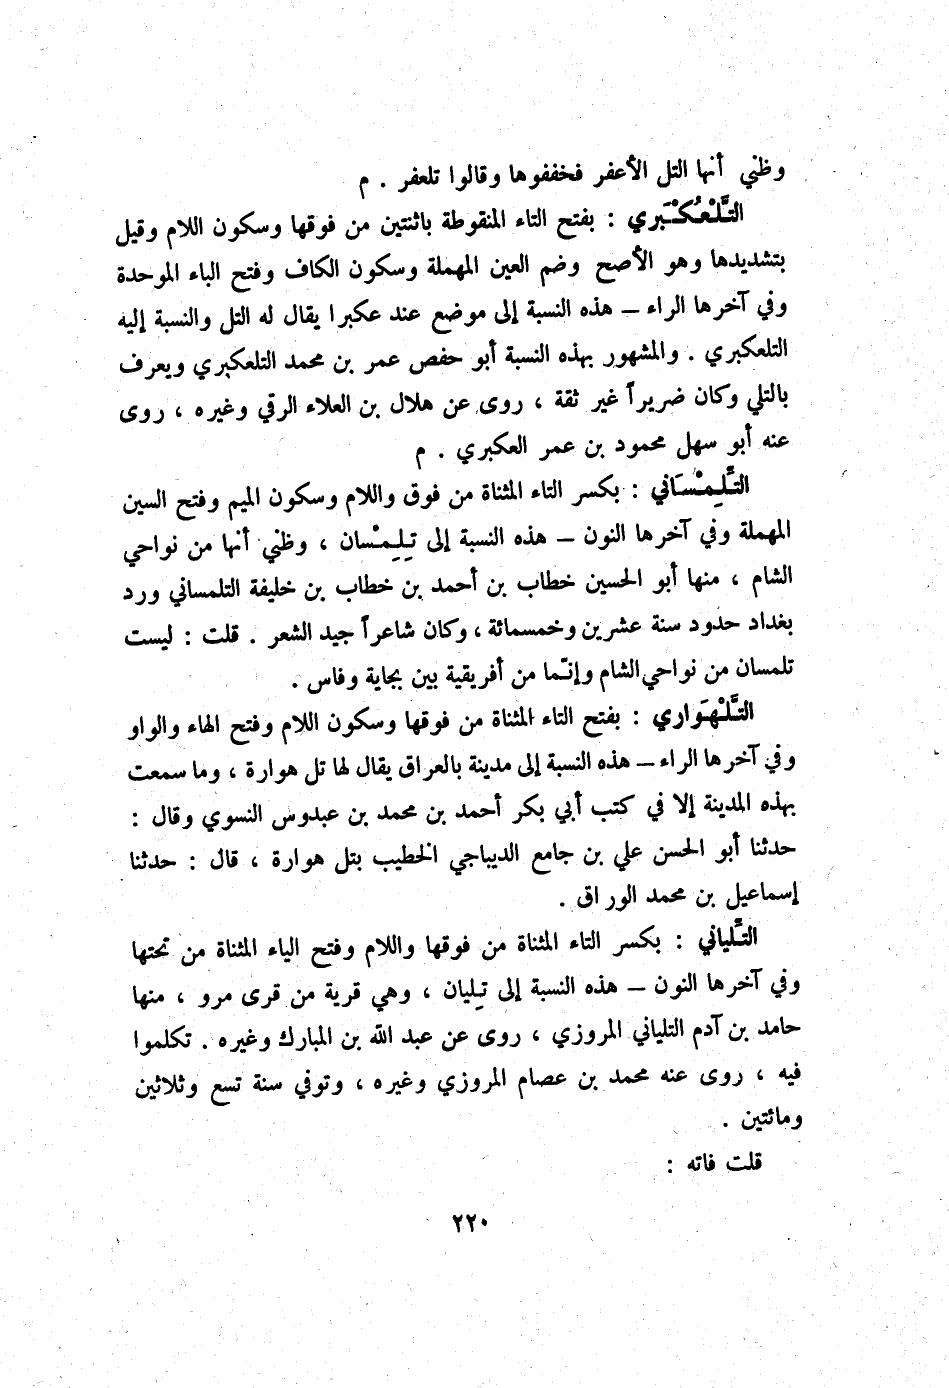 وظني أنها التل الأعفر فخففوها وقالوا تلعفر . م
التَّلْعُكْبَري : بفتح التاء المنقوطة باثنتين من فوقها وسكون اللام وقيل
بتشديدها وهو الأصح وضم العين المهملة وسكون الكاف وفتح الباء الموحدة
وفي آخرها الراء — هذه النسبة إلى موضع عند عكبرا يقال له التل والنسبة إليه
التلعكبري . والمشهور بهذه النسبة أبو حفص عمر بن محمد التلعكبري ويعرف
بالتلي وكان ضريراً غير ثقة ، روى عن هلال بن العلاء الرقي وغيره ، روى
عنه أبو سهل محمود بن عمر العكبري . م
التِّلِمْسَاني : بكسر التاء المثناة من فوق واللام وسكون الميم وفتح السين
المهملة وفي آخرها النون — هذه النسبة إلى تِلِمْسان ، وظني أنها من نواحي
الشام ، منها أبو الحسين خطاب بن أحمد بن خطاب بن خليفة التلمساني ورد
بغداد حدود سنة عشرين وخمسمائة ، وكان شاعراً جيد الشعر . قلت : ليست
تلمسان من نواحي الشام وإنّما من أفريقية بين بجاية وفاس .
التَّلْهَوَاري : بفتح التاء المثناة من فوقها وسكون اللام وفتح الهاء والواو
وفي آخرها الراء — هذه النسبة إلى مدينة بالعراق يقال لها تل هوارة ، وما سمعت
بهذه المدينة إلا في كتب أبي بكر أحمد بن محمد بن عبدوس النسوي وقال :
حدثنا أبو الحسن علي بن جامع الديباجي الخطيب بتل هوارة ، قال : حدثنا
إسماعيل بن محمد الوراق .
التِّلياني : بكسر التاء المثناة من فوقها واللام وفتح الياء المثناة من تحتها
وفي آخرها النون — هذه النسبة إلى تِليان ، وهي قرية من قرى مرو ، منها
حامد بن آدم التلياني المروزي ، روى عن عبد الله بن المبارك وغيره . تكلموا
فيه ، روى عنه محمد بن عصام المروزي وغيره ، وتوفي سنة تسع وثلاثين
ومائتين .
قلت فاته :
٢٢٠